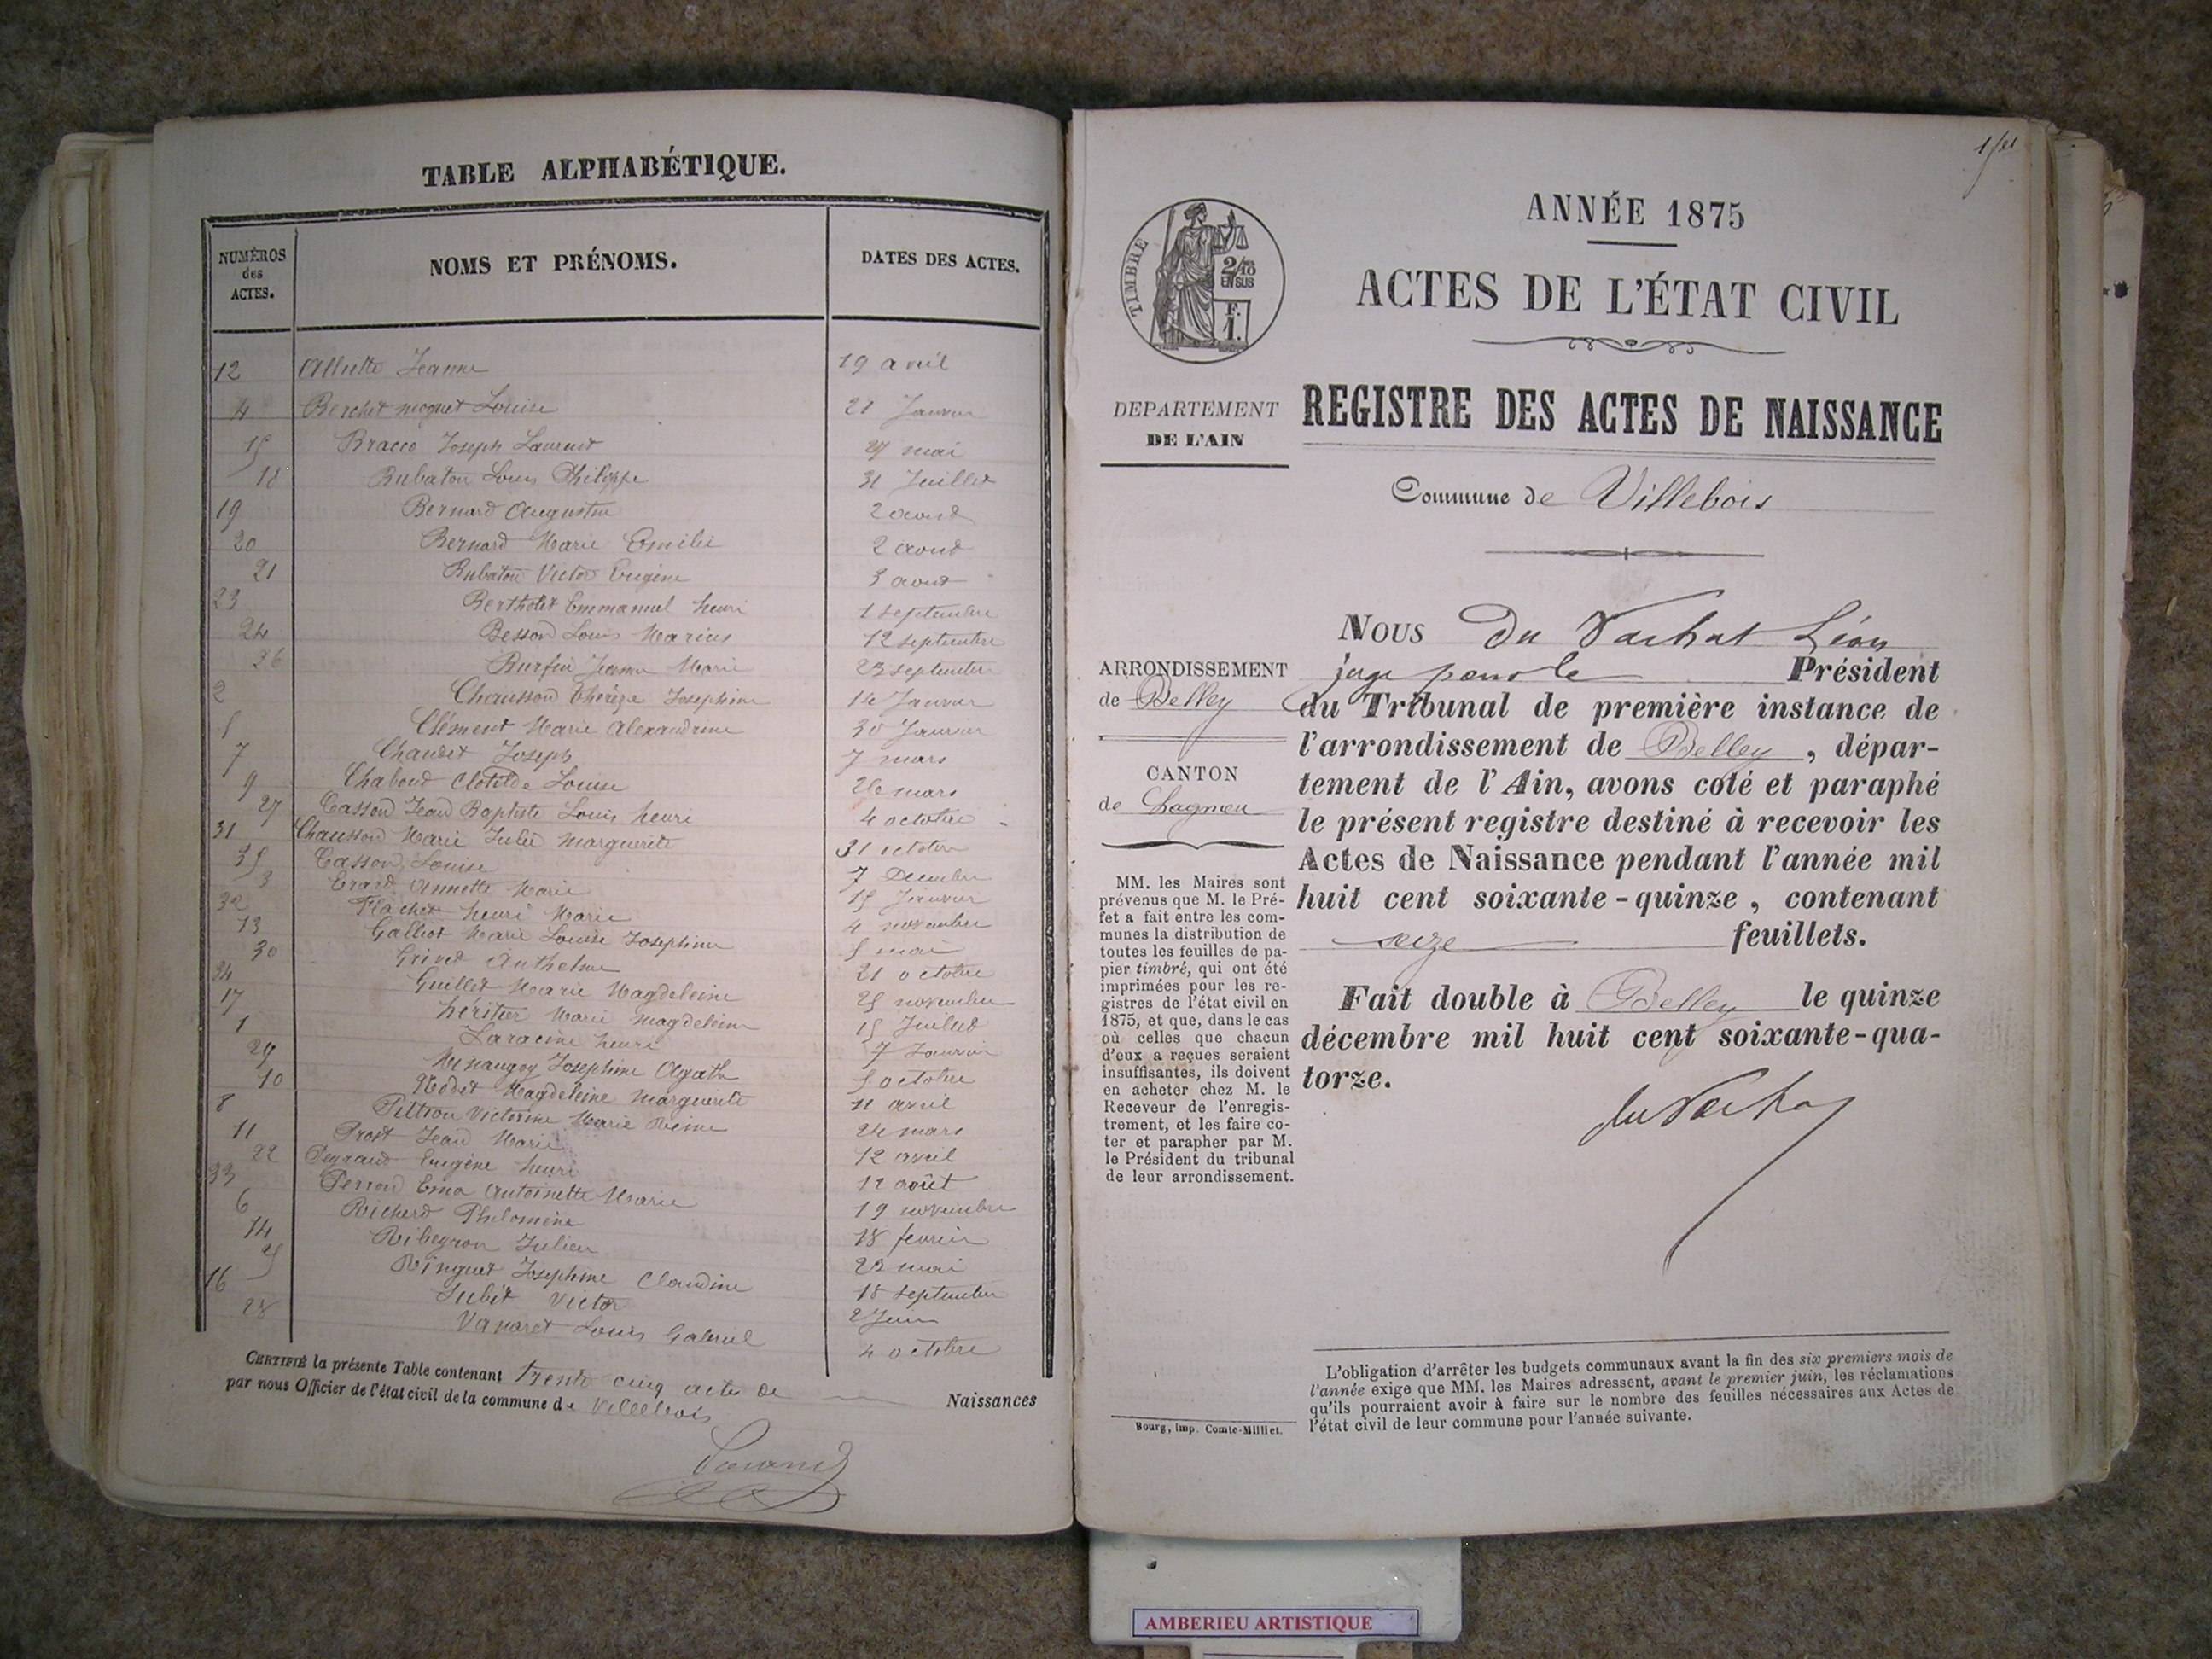 TABLE ALPHABÉTIQUE.
NUMÉROS des ACTES. NOMS ET PRÉNOMS. DATES DES ACTES.
12 Allutte Jeanne 19 avril
4 Berchet moguet Louise 21 Janvier
15 Bracco Joseph Laurent 27 mai
18 Bubaton Louis Philippe 31 Juillet
19 Bernard Augustin 2 aout
20 Bernard Marie Emilie 2 aout
21 Bubaton Victor Eugène 3 aout
23 Bertholet Emmanuel henri 1 septembre
24 Besson Louis Marius 12 septembre
26 Burfin Jeanne Marie 23 septembre
2 Chausson Thérèze Josephine 14 Janvier
5 Clément Marie Alexandrine 30 Janvier
7 Chaudet Joseph 7 mars
9 Chaboud Clotilde Louise 26 mars
27 Casson Jean Baptiste Louis henri 4 octobre
31 Chausson Marie Julie Marguerite 31 octobre
35 Casson Louise 7 Decembre
3 Erard Annette Marie 15 Janvier
32 Flachet henri Marie 4 novembre
13 Galliot Marie Louise Josephine 5 mai
30 Grinet Anthelme 21 octobre
34 Guillet Marie Magdeleine 25 novembre
17 héritier Marie Magdeleine 15 Juillet
1 Laracine henri 7 Janvier
29 Josephine Agathe 5 octobre
10 Modet Magdeleine Marguerite 11 avril
8 Pittion Victorine Marie Reine 24 mars
11 Prost Jean Marie 12 avril
22 Peyraud Eugène henri 12 août
33 Perron Ema Antoinette Marie 19 novembre
6 Richerd Philomène 18 fevrier
14 Ribeyron Julien 23 mai
25 Ringuet Josephine Claudine 18 septembre
16 Subit Victor 2 Juin
28 Vanaret Louis Gabriel 4 octobre
CERTIFIÉ la présente Table contenant trente cinq actes de Naissances
par nous Officier de l'état civil de la commune de Villebois
1er
ANNÉE 1875
ACTES DE L'ÉTAT CIVIL
TIMBRE
2/10
EN SUS
F.
1.
DEPARTEMENT
DE L'AIN
REGISTRE DES ACTES DE NAISSANCE
Commune de Villebois
ARRONDISSEMENT
de Belley
CANTON
de Lhagnieu
MM. les Maires sont
prévenus que M. le Pré-
fet a fait entre les com-
munes la distribution de
toutes les feuilles de pa-
pier timbré, qui ont été
imprimées pour les re-
gistres de l'état civil en
1875, et que, dans le cas
où celles que chacun
d'eux a reçues seraient
insuffisantes, ils doivent
en acheter chez M. le
Receveur de l'enregis-
trement, et les faire co-
ter et parapher par M.
le Président du tribunal
de leur arrondissement.
Bourg, imp. Comte-Milliet.
NOUS Du Vachat Léon
juge pour le Président
du Tribunal de première instance de
l'arrondissement de Belley, dépar-
tement de l'Ain, avons coté et paraphé
le présent registre destiné à recevoir les
Actes de Naissance pendant l'année mil
huit cent soixante-quinze, contenant
seize feuillets.
Fait double à Belley le quinze
décembre mil huit cent soixante-qua-
torze.
du Vachat
L'obligation d'arrêter les budgets communaux avant la fin des six premiers mois de
l'année exige que MM. les Maires adressent, avant le premier juin, les réclamations
qu'ils pourraient avoir à faire sur le nombre des feuilles nécessaires aux Actes de
l'état civil de leur commune pour l'année suivante.
AMBERIEU ARTISTIQUE